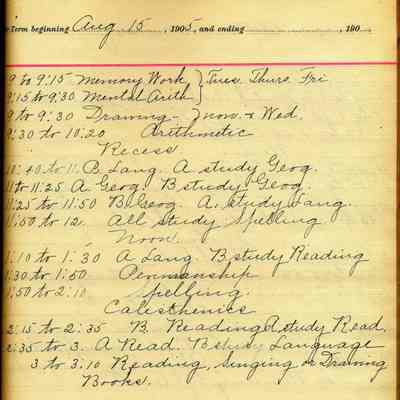 Term beginning Aug 15, 1905, and ending , 190
9 to 9:15 Memory Work } Tues. Thurs. Fri
9:15 to 9:30 Mental Arith }
9 to 9:30 Drawing - } Mon. & Wed.
9:30 to 10:20 Arithmetic
Recess
10:40 to 11. B Lang. A study Geog.
11 to 11:25 A Geog. B study Geog.
11:25 to 11:50 B Geog. A. study Lang.
11:50 to 12. All study Spelling
Noon.
1:10 to 1:30 A Lang. B study Reading
1:30 to 1:50 Penmanship
1:50 to 2:10 Spelling.
Calisthenics
2:15 to 2:35 B. Reading A study Read.
2:35 to 3. A Read. B study Language
3 to 3:10 Reading, Singing or Drawing
Books.